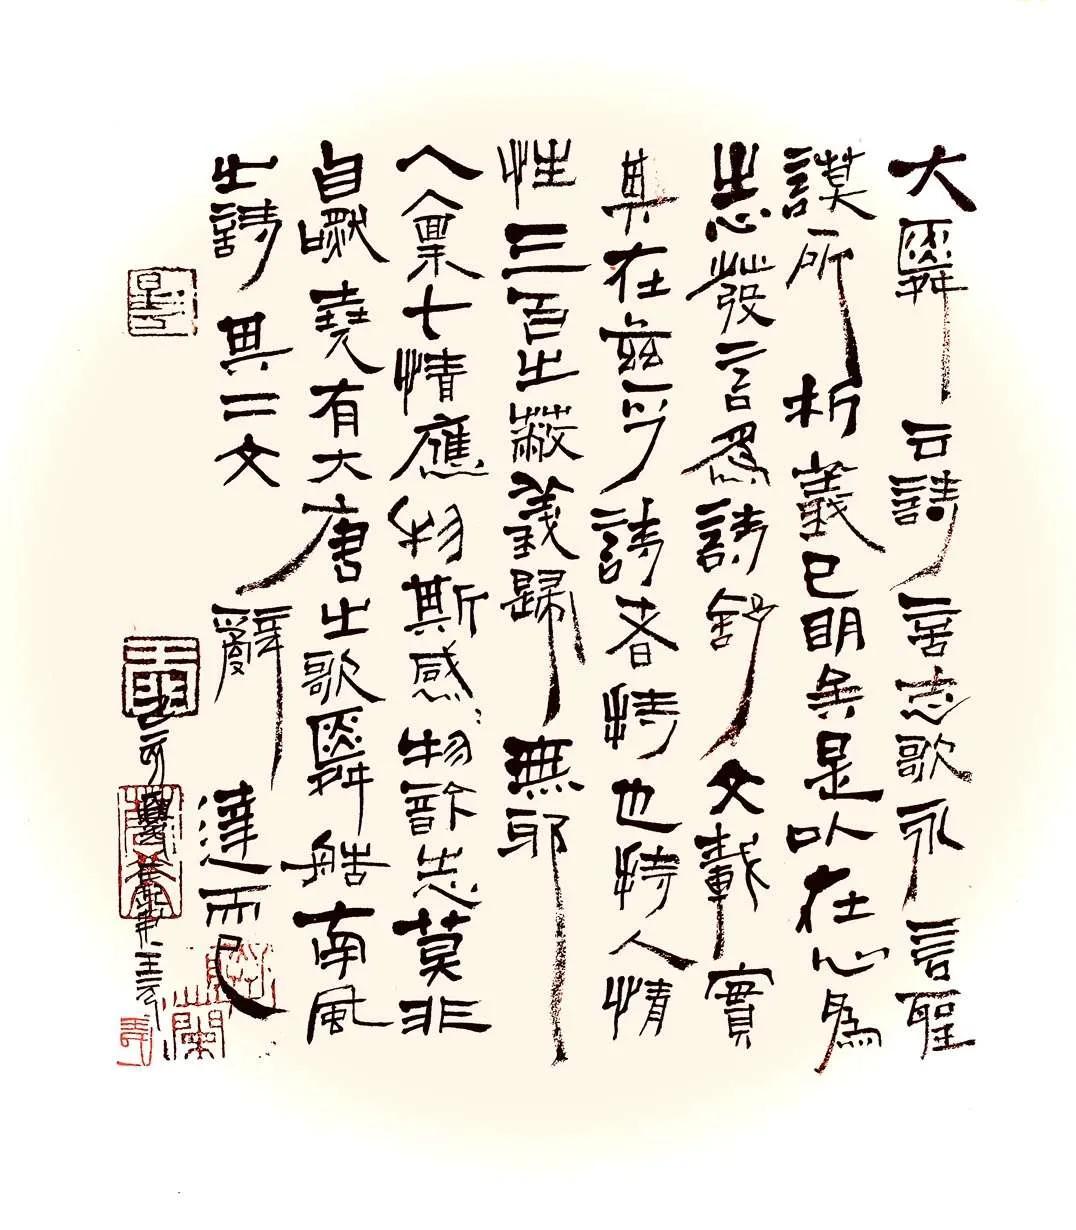 大舜云詩言志歌永言聖
謨所析義已明矣是以在心為
志發言為詩舒文載實
其在茲乎詩者持也持人情
性三百之蔽義歸無邪
人稟七情應物斯感物吟志莫非
自然堯有大唐之歌舜造南風
之詩其二文辭達而已
己亥夏